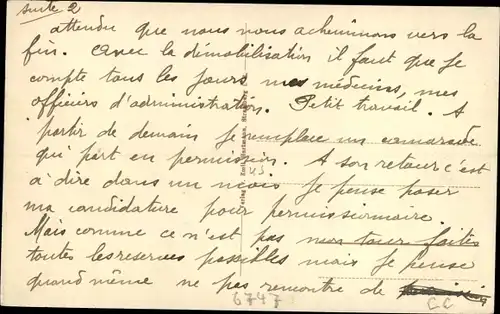 suite 2
attendu que nous nous acheminons vers la
fin. Avec la démobilisation il faut que je
compte tous les jours mes médecins, mes
officiers d'administration. Petit travail. A
partir de demain je remplace un camarade
qui part en permission. A son retour c'est
à dire dans un mois je pense poser
ma candidature pour permissionnaire.
Mais comme ce n'est pas mon tour faites
toutes les reserves possibles mais je pense
quand même ne pas rencontre de
6747
CC